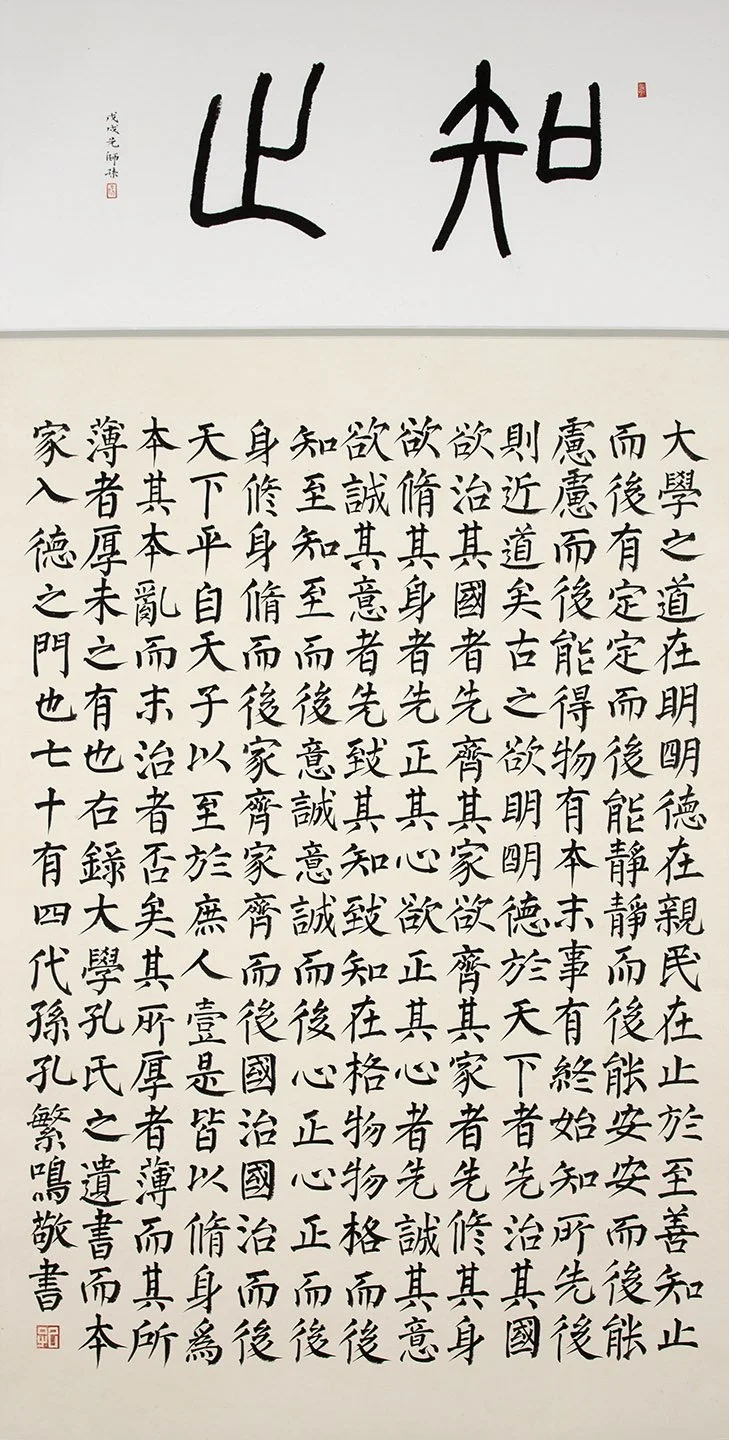 知止
戊戌先師
大學之道在明明德在親民在止於至善知止
而後有定定而後能靜靜而後能安安而後能
慮慮而後能得物有本末事有終始知所先後
則近道矣古之欲明明德於天下者先治其國
欲治其國者先齊其家欲齊其家者先修其身
欲脩其身者先正其心欲正其心者先誠其意
欲誠其意者先致其知致知在格物物格而後
知至知至而後意誠意誠而後心正心正而後
身修身脩而後家齊家齊而後國治國治而後
天下平自天子以至於庶人壹是皆以脩身爲
本其本亂而末治者否矣其所厚者薄而其所
薄者厚未之有也右錄大學孔氏之遺書而本
家入德之門也七十有四代孫孔繁鳴敬書